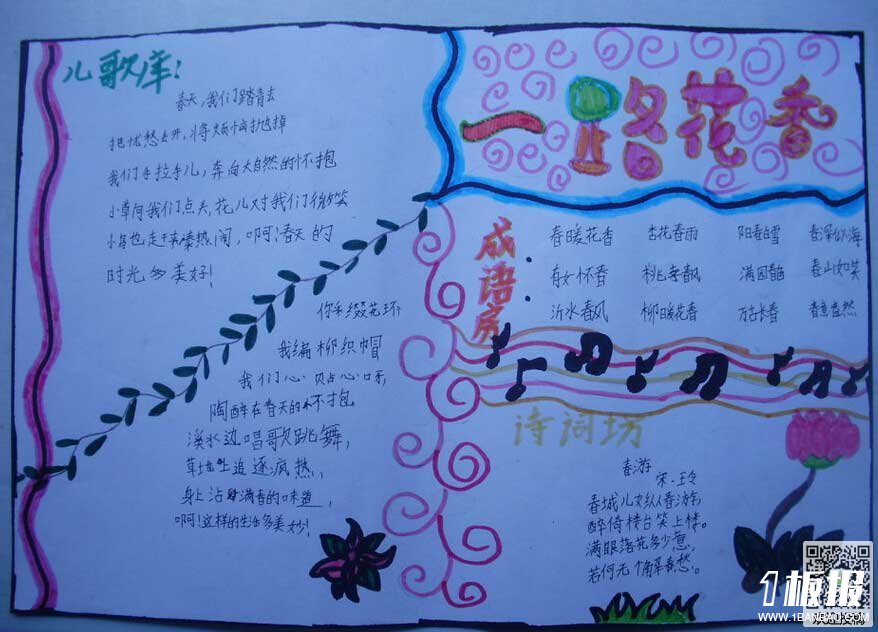 儿歌库:
春天,我们踏青去
把忧愁丢开,将烦恼抛掉
我们手拉手儿,奔向大自然的怀抱
小草向我们点头,花儿对我们微笑
小鸟也赶来凑热闹,啊!春天的
时光多美好!
你采缀花环
我编柳织帽
我们心贴心呀,
陶醉在春天的怀抱
溪水边唱歌跳舞,
草地上追逐疯热,
身上沾满春的味道,
啊!这样的生活多美妙!
一路花香
成语房:
春暖花香 杏花春雨 阳春白雪 春深似海
有女怀春 桃李春风 满园春色 春山如笑
沂水春风 柳暖花春 万古长春 春意盎然
诗词坊
春游
宋·王令
春城儿女纵春游,
醉倚楼台笑上楼。
满眼落花多少意,
若何无个解春愁。
1板报
WWW.1BANBAO.COM
欢迎投稿